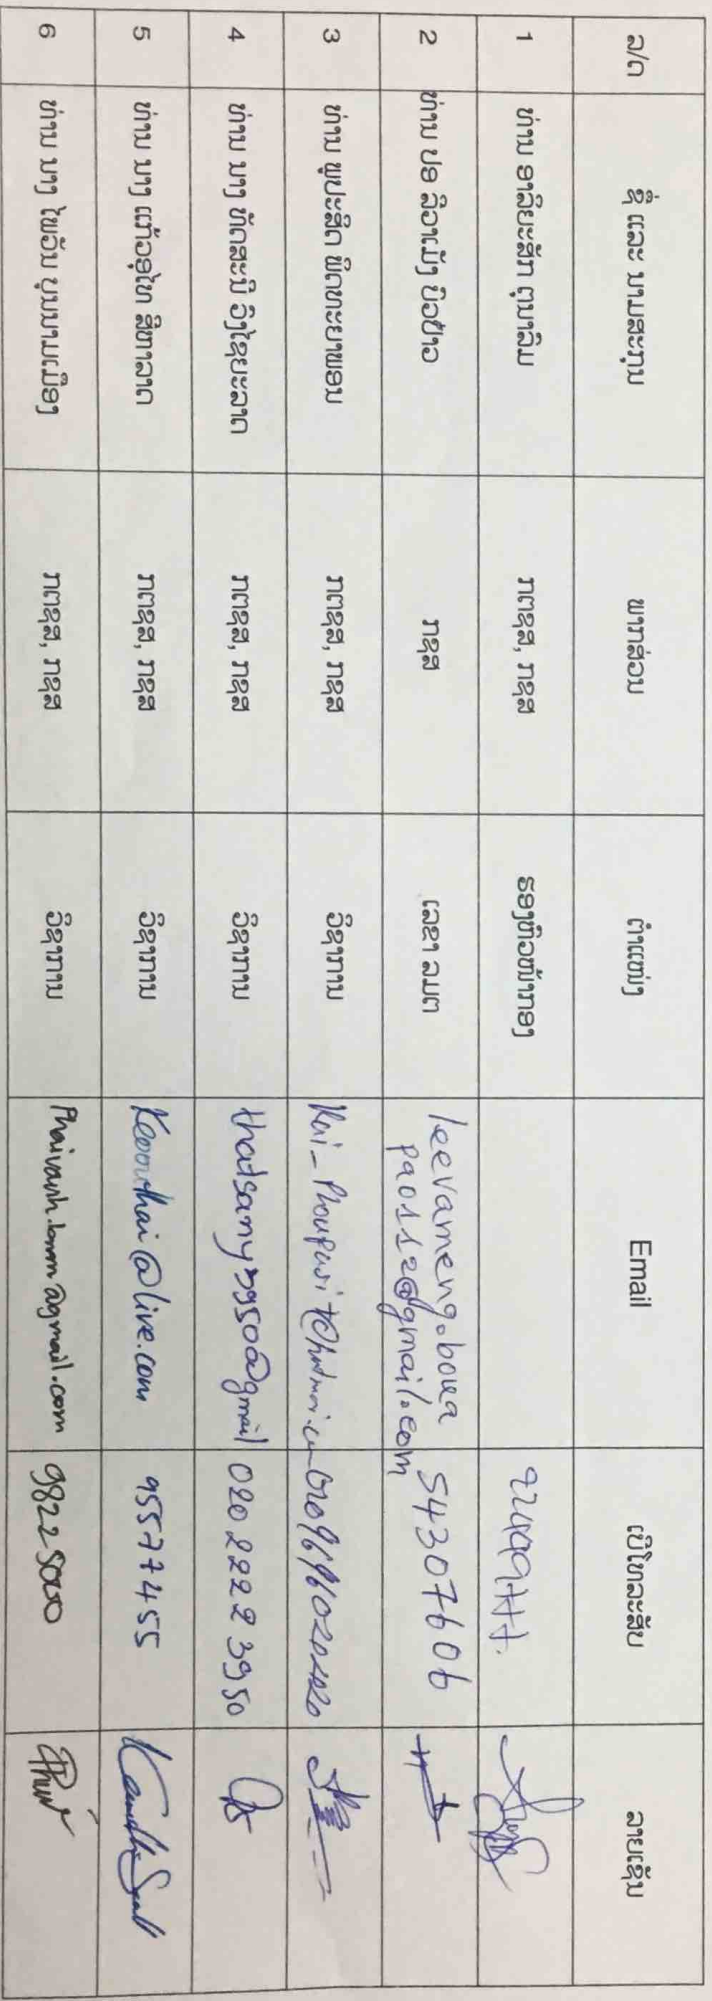 ລ/ດ ຊື່ ແລະ ນາມສະກຸນ ພາກສ່ວນ ຕຳແໜ່ງ Email ເບີໂທລະສັບ ລາຍເຊັນ
1 ທ່ານ ອາລິຍະສັກ ຕຸນາລົມ ກຕຊສ, ກຊສ ຮອງຫົວໜ້າກອງ
2 ທ່ານ ປອ ລີວາເມັງ ບົວປ່າວ ກຊສ ເລຂາ ລມຕ leevameng.boua 54307606
pao112@gmail.com
3 ທ່ານ ພູປະສິດ ພິດທະຍາພອນ ກຕຊສ, ກຊສ ວິຊາການ
4 ທ່ານ ນາງ ທັດສະນີ ວົງໄຊຍະລາດ ກຕຊສ, ກຊສ ວິຊາການ thatsany3950@gmail 020 2222 3950
5 ທ່ານ ນາງ ແກ້ວອຸໄທ ສີຫາລາດ ກຕຊສ, ກຊສ ວິຊາການ Keoouthai@live.com 95577455
6 ທ່ານ ນາງ ໄພວັນ ບຸນນາມເມືອງ ກຕຊສ, ກຊສ ວິຊາການ Phaivanh.bnm@gmail.com 98225000